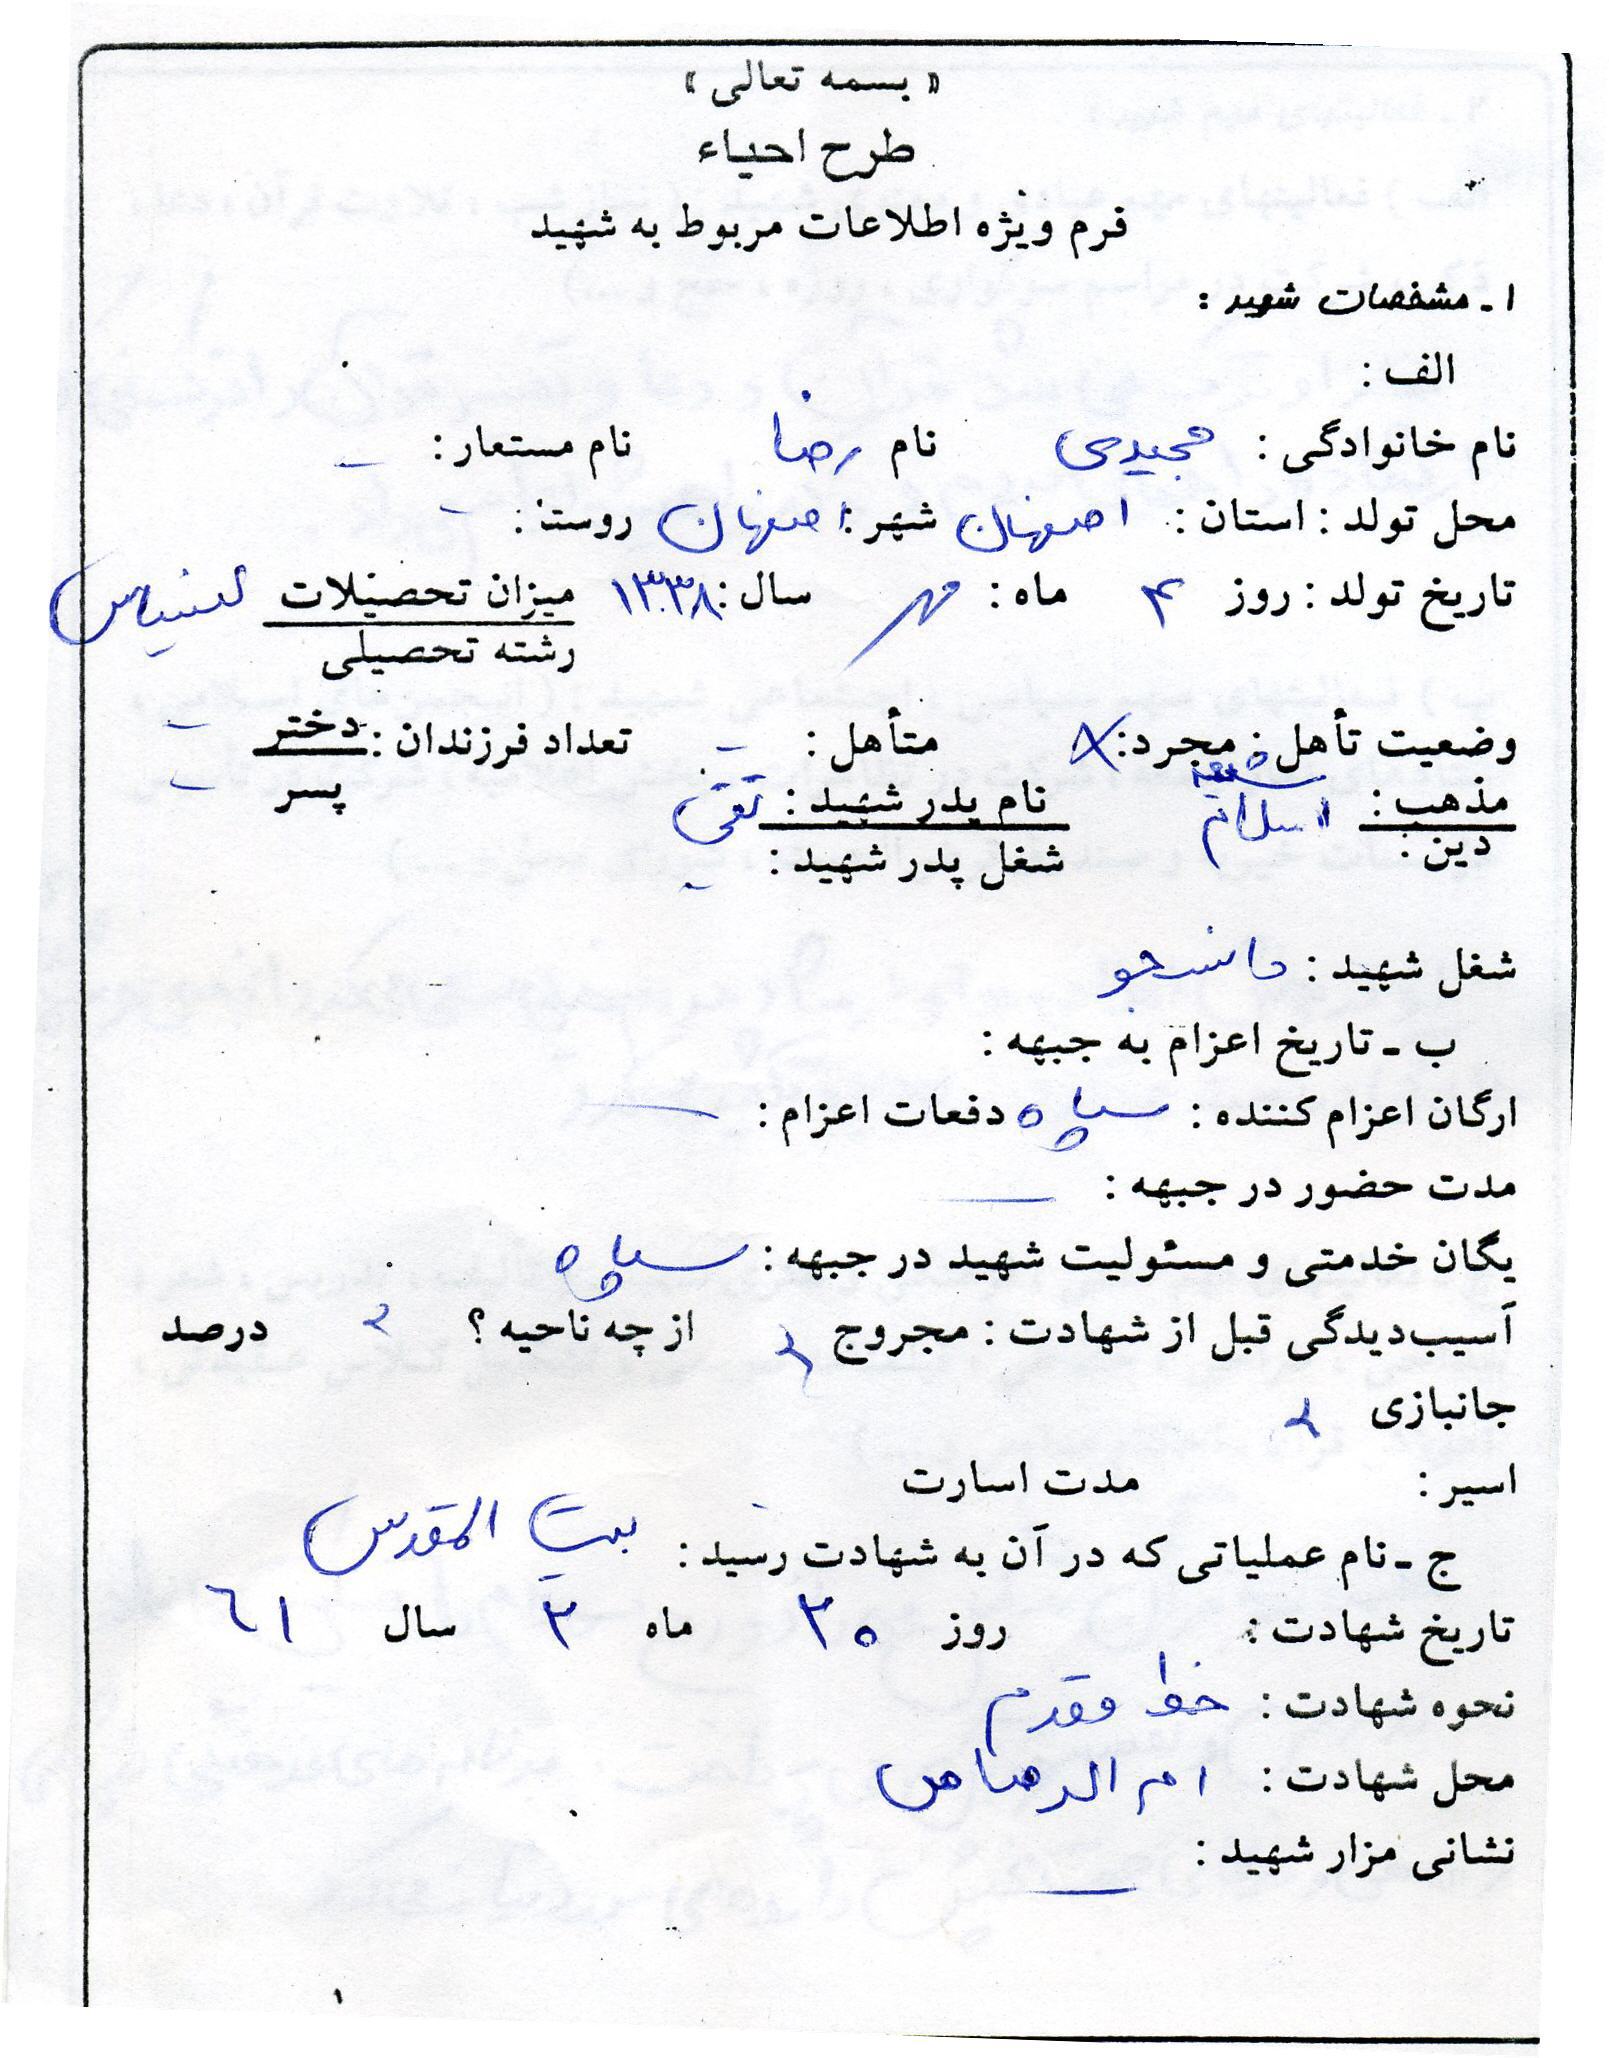 « بسمه تعالی »
طرح احیاء
فرم ویژه اطلاعات مربوط به شهید
۱ ـ مشخصات شهید :
الف :
نام خانوادگی : مجیدی نام رضا نام مستعار : –
محل تولد : استان : اصفهان شهر : اصفهان روستا : –
تاریخ تولد : روز ۴ ماه : مهر سال : ۱۳۳۸ میزان تحصیلات لیسانس
رشته تحصیلی
وضعیت تأهل : مجرد : × متأهل : – تعداد فرزندان : دختر –
پسر –
مذهب : شیعه نام پدر شهید : تقی
دین : اسلام شغل پدر شهید : –
شغل شهید : دانشجو
ب ـ تاریخ اعزام به جبهه :
ارگان اعزام کننده : سپاه دفعات اعزام : —
مدت حضور در جبهه : —
یگان خدمتی و مسئولیت شهید در جبهه : سپاه
آسیب‌دیدگی قبل از شهادت : مجروح از چه ناحیه ؟ درصد
جانبازی
اسیر : مدت اسارت
ج ـ نام عملیاتی که در آن به شهادت رسید : بیت المقدس
تاریخ شهادت : روز ۳۰ ماه ۳ سال ۶۱
نحوه شهادت : خط مقدم
محل شهادت : ام الرصاص
نشانی مزار شهید : —
۱